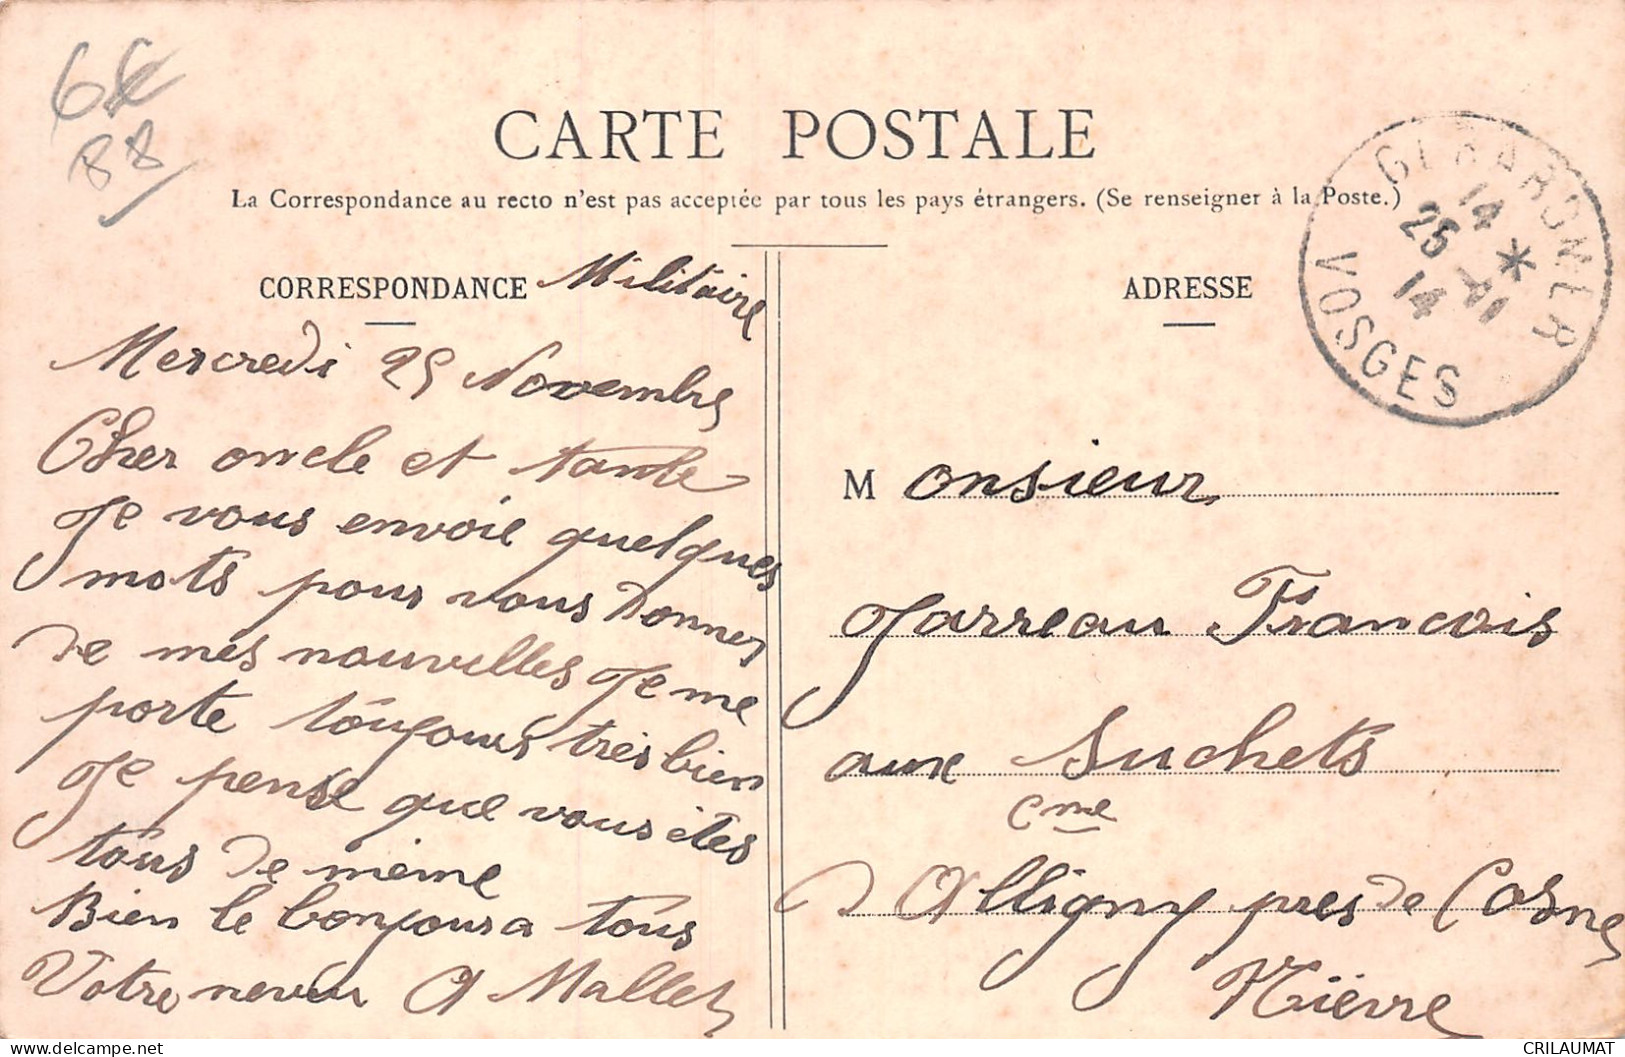 6€
88
CARTE POSTALE
La Correspondance au recto n'est pas acceptée par tous les pays étrangers. (Se renseigner à la Poste.)
CORRESPONDANCE Militaire
Mercredi 25 Novembre
Cher oncle et tante
Je vous envoie quelques
mots pour vous donner
de mes nouvelles Je me
porte toujours très bien
Je pense que vous êtes
tous de même
Bien le bonjour a tous
Votre neveu A Mallet
ADRESSE
GERARDMER
14 *
25 - 11
14
VOSGES
Monsieur
Jarreau Francois
aux Suchets
Cme
D Alligny pres de Cosne
Nièvre
CRILAUMAT